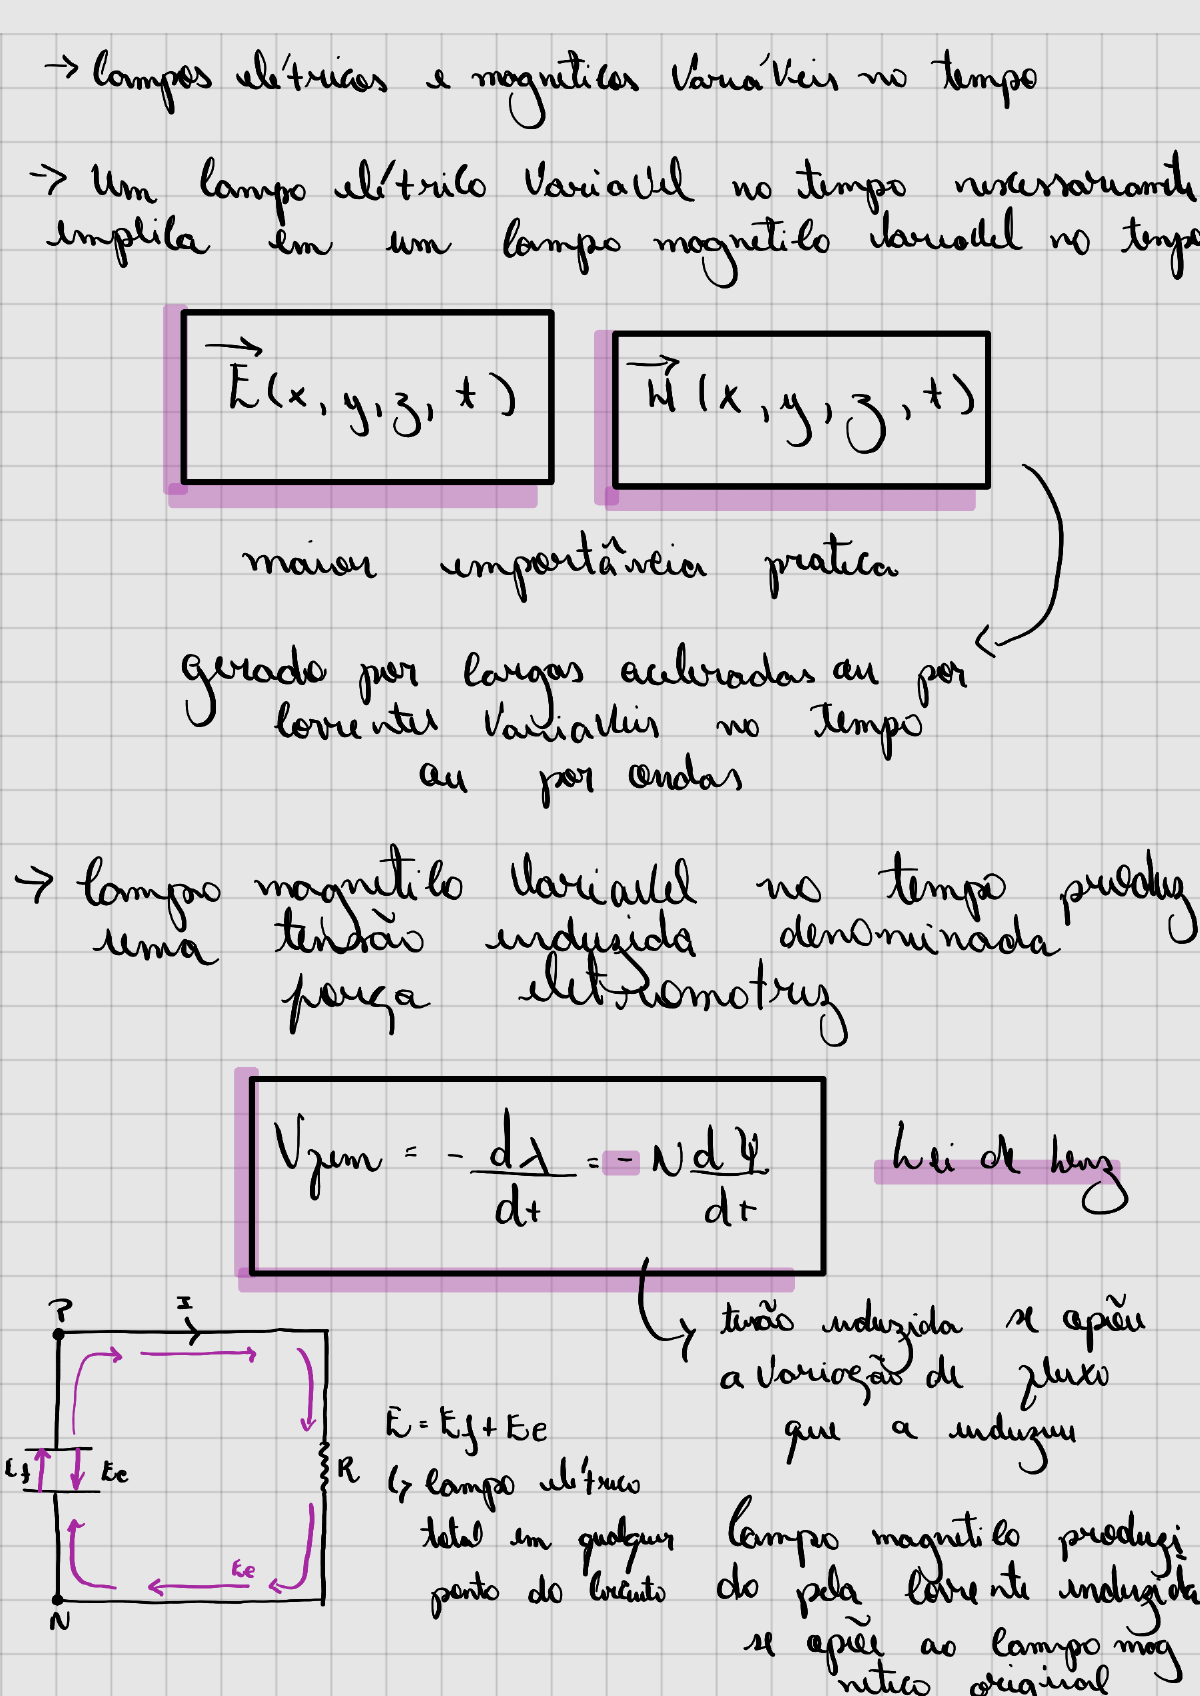 → Campos elétricos e magneticos Variáveis no tempo
→ Um Campo elétrico Variavel no tempo necessariamente
implica em um campo magnetico variavel no tempo
E(x, y, z, t)
H(x, y, z, t)
maior importância pratica
gerado por cargas aceleradas ou por
correntes Variaveis no tempo
ou por ondas
→ Campo magnetico Variavel no tempo produz
uma tensão induzida denominada
força eletromotriz
Vfem = - dλ/dt = - N dΨ/dt
Lei de Lenz
P
I
tensão induzida se opõeu
a variação de fluxo
que a induziu
E = Ef + Ee
Ef
Ee
R
↳ Campo elétrico
total em qualquer
ponto do circuito
Ee
N
Campo magnetico produzi
do pela corrente induzida
se opõe ao campo mag
netico original